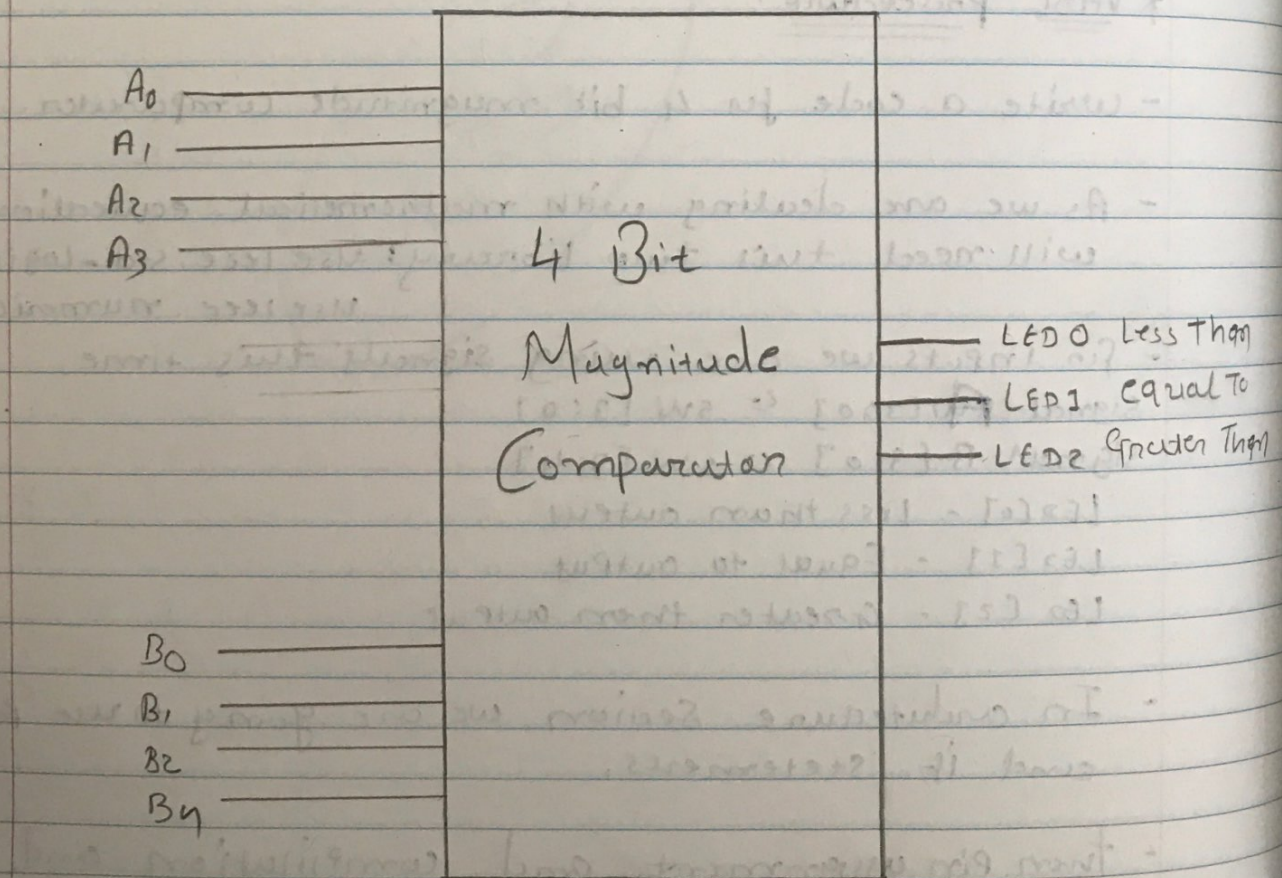 A0
A1
A2
A3
4 Bit
Magnitude
Comparator
LED0 Less Than
LED1 equal To
LED2 Greater Than
B0
B1
B2
B4